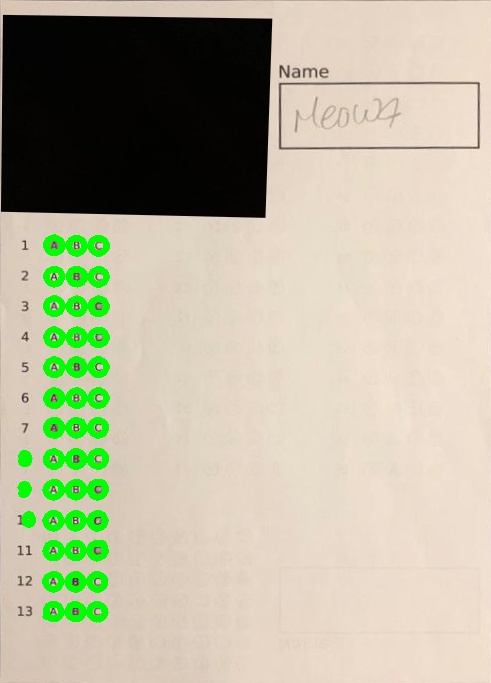 Name
Meow7
1 A B C
2 A B C
3 A B C
4 A B C
5 A B C
6 A B C
7 A B C
A B C
A B C
1 A B C
11 A B C
12 A B C
13 A B C